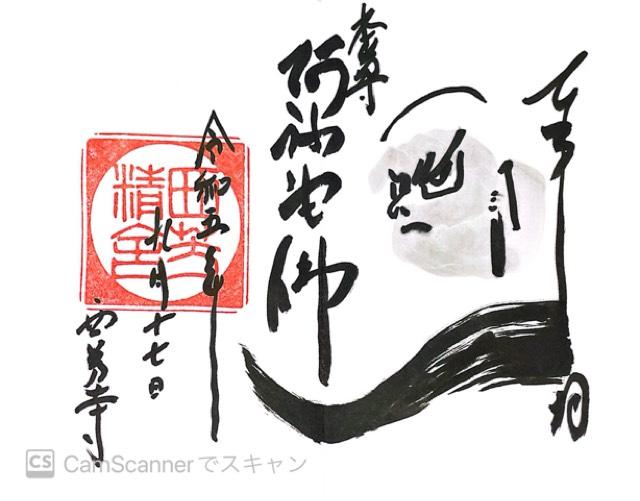 奉拝
本尊
阿弥陀佛
令和五年
九月十七日
西芳寺
CS CamScannerでスキャン